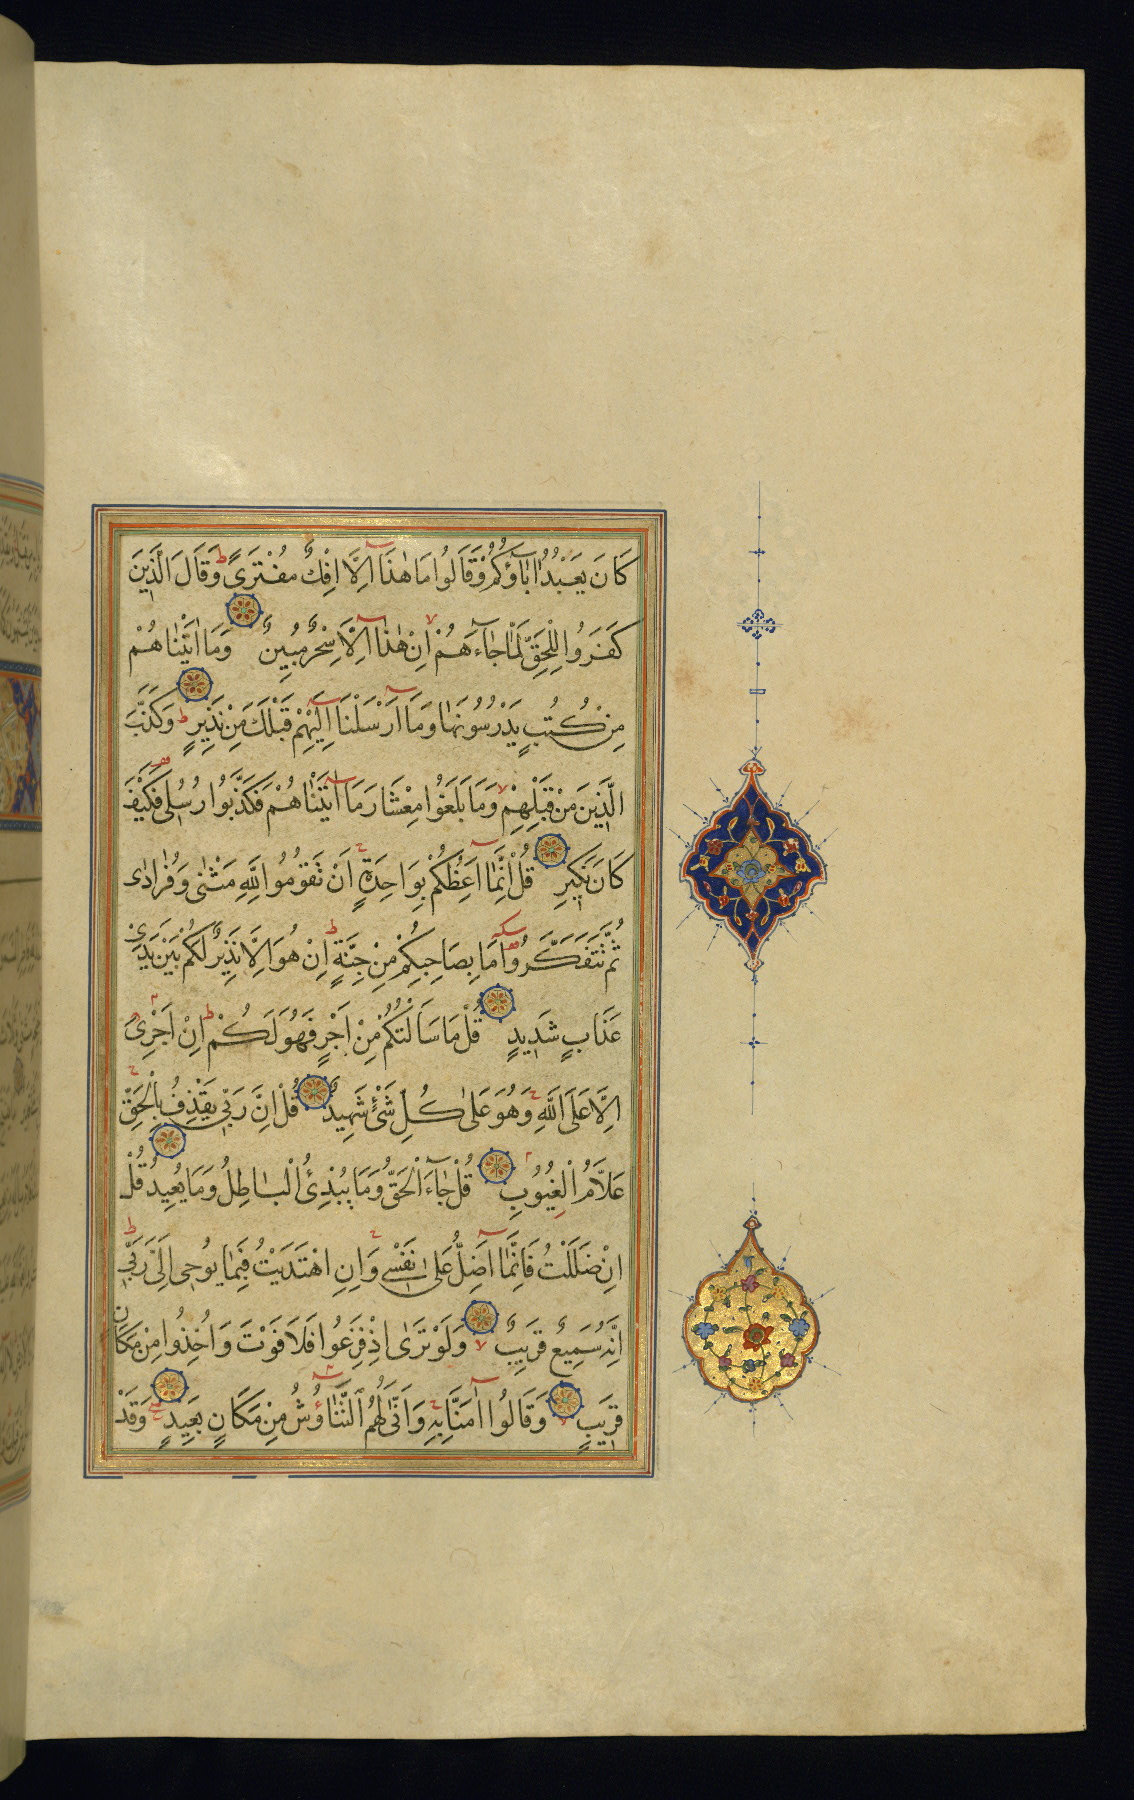 كَانَ يَعْبُدُ اٰبَاؤُكُمْ وَقَالُوا مَا هٰذَا اِلَّا اِفْكٌ مُفْتَرًى وَقَالَ الَّذِينَ
كَفَرُوا لِلْحَقِّ لَمَّا جَاءَهُمْ اِنْ هٰذَا اِلَّا سِحْرٌ مُبِينٌ وَمَا اٰتَيْنَاهُمْ
مِنْ كُتُبٍ يَدْرُسُونَهَا وَمَا اَرْسَلْنَا اِلَيْهِمْ قَبْلَكَ مِنْ نَذِيرٍ وَكَذَّبَ
الَّذِينَ مِنْ قَبْلِهِمْ وَمَا بَلَغُوا مِعْشَارَ مَا اٰتَيْنَاهُمْ فَكَذَّبُوا رُسُلِى فَكَيْفَ
كَانَ نَكِيرِ قُلْ اِنَّمَا اَعِظُكُمْ بِوَاحِدَةٍ اَنْ تَقُومُوا لِلّٰهِ مَثْنٰى وَفُرَادٰى
ثُمَّ تَتَفَكَّرُوا مَا بِصَاحِبِكُمْ مِنْ جِنَّةٍ اِنْ هُوَ اِلَّا نَذِيرٌ لَكُمْ بَيْنَ يَدَىْ
عَذَابٍ شَدِيدٍ قُلْ مَا سَاَلْتُكُمْ مِنْ اَجْرٍ فَهُوَ لَكُمْ اِنْ اَجْرِىَ
اِلَّا عَلَى اللّٰهِ وَهُوَ عَلٰى كُلِّ شَىْءٍ شَهِيدٌ قُلْ اِنَّ رَبِّى يَقْذِفُ بِالْحَقِّ
عَلَّامُ الْغُيُوبِ قُلْ جَاءَ الْحَقُّ وَمَا يُبْدِئُ الْبَاطِلُ وَمَا يُعِيدُ قُلْ
اِنْ ضَلَلْتُ فَاِنَّمَا اَضِلُّ عَلٰى نَفْسِى وَاِنِ اهْتَدَيْتُ فَبِمَا يُوحِى اِلَىَّ رَبِّى
اِنَّهُ سَمِيعٌ قَرِيبٌ وَلَوْ تَرٰى اِذْ فَزِعُوا فَلَا فَوْتَ وَاُخِذُوا مِنْ مَكَانٍ
قَرِيبٍ وَقَالُوا اٰمَنَّا بِهِ وَاَنّٰى لَهُمُ التَّنَاوُشُ مِنْ مَكَانٍ بَعِيدٍ وَقَدْ